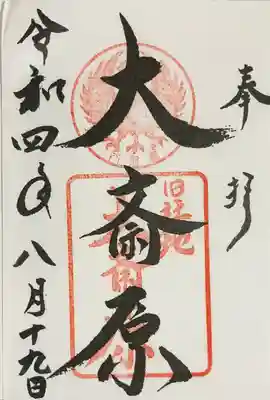 奉拝
大斎原
旧社地
令和四年八月十九日